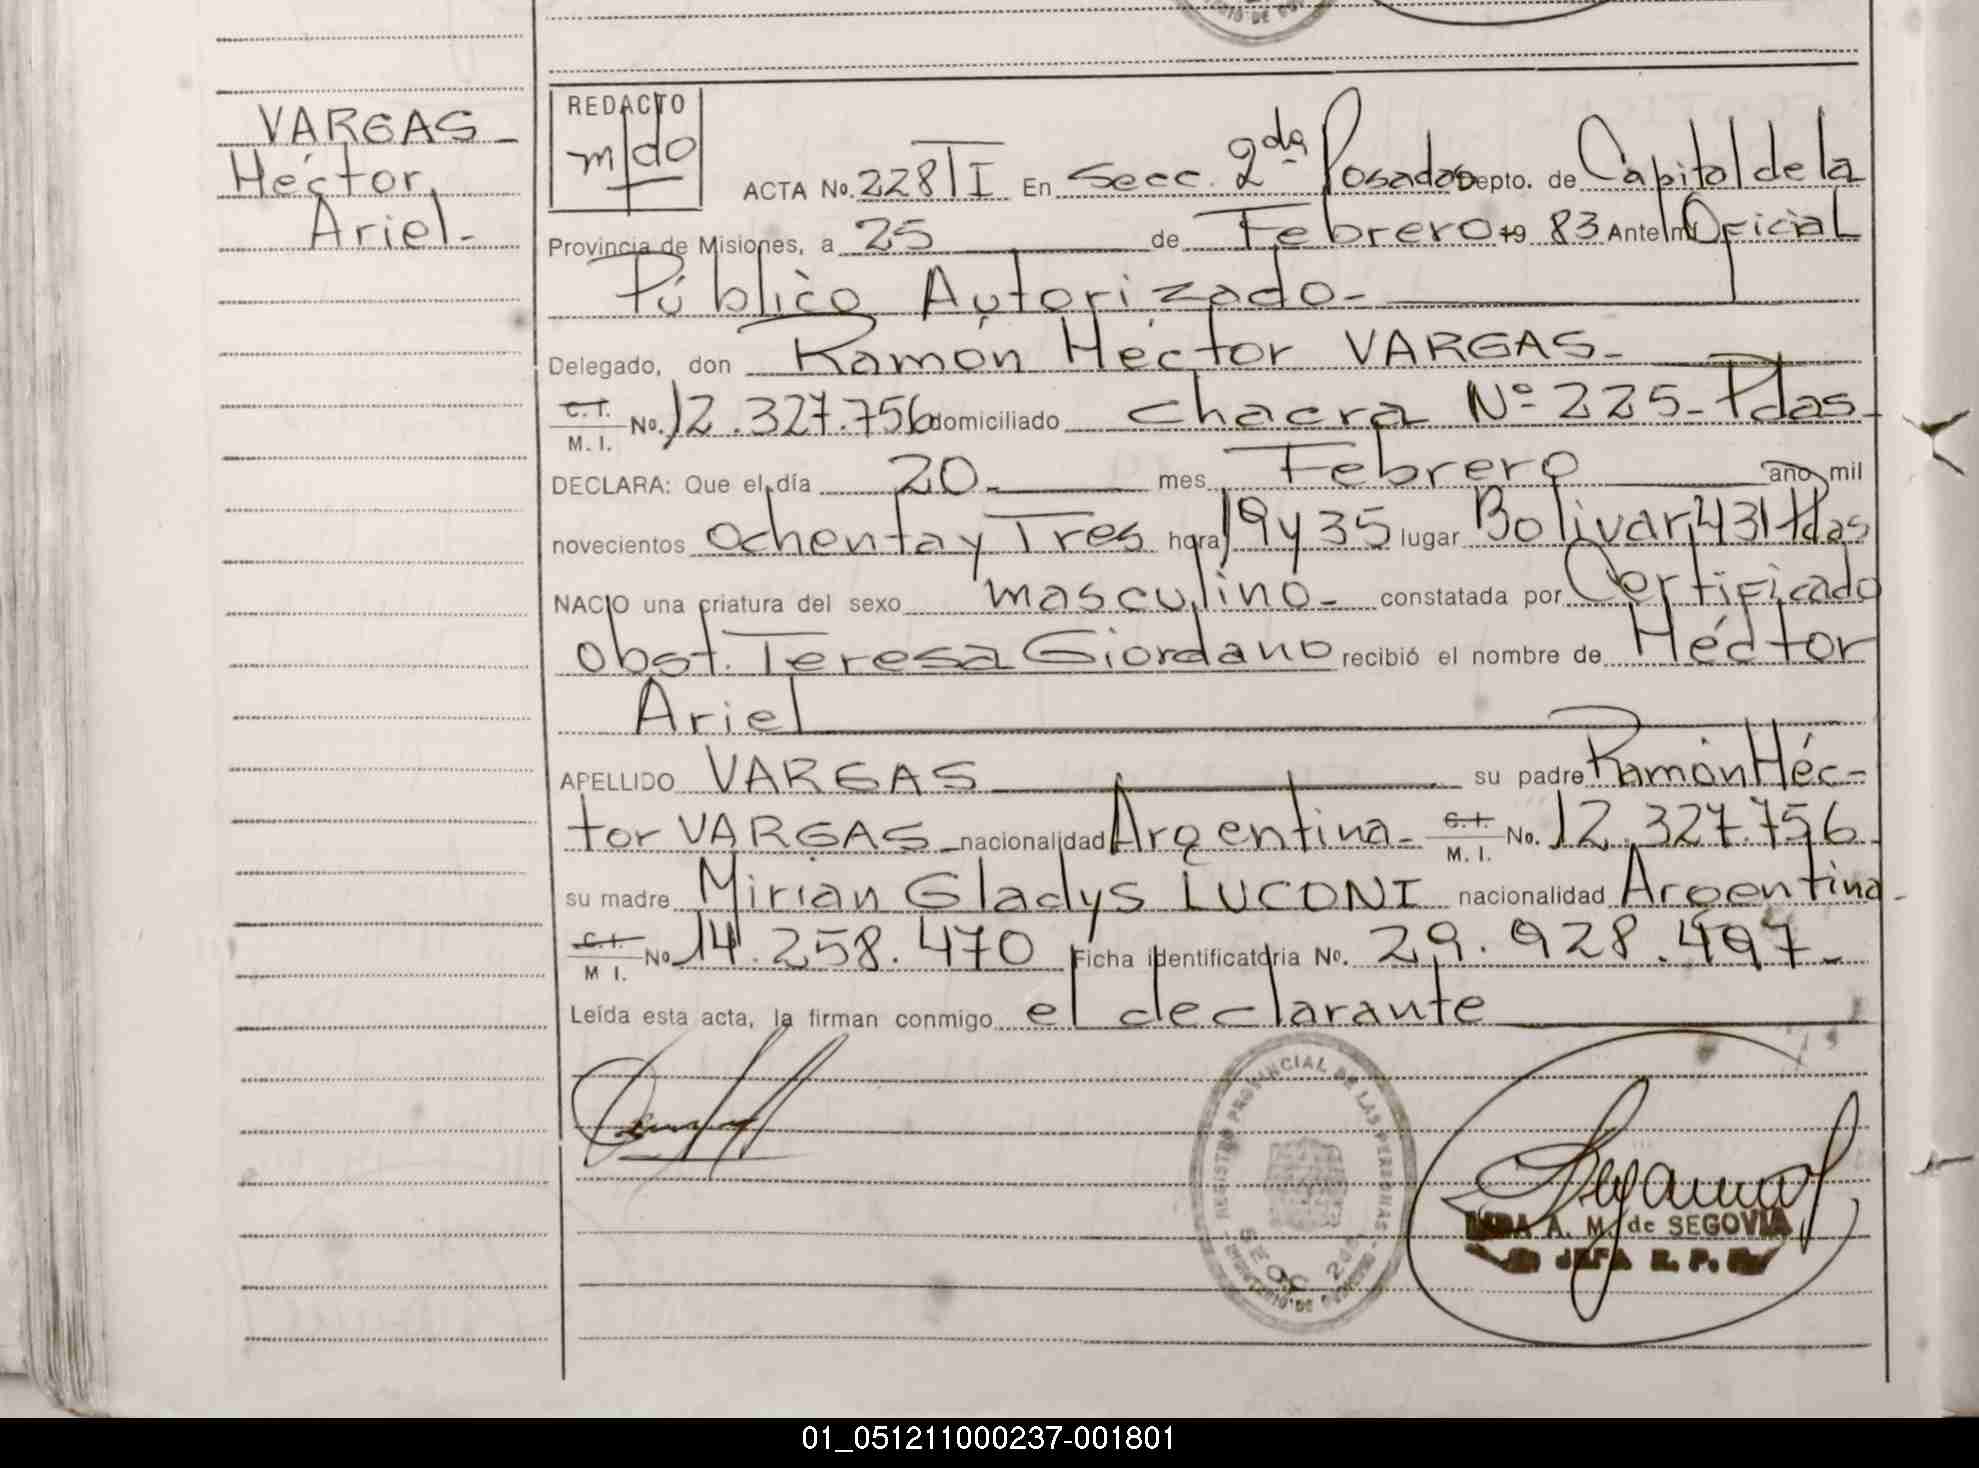 VARGAS-
Héctor
Ariel-
REDACTO
mdo
ACTA No. 228/I En Secc. 2da Posadas Depto. de Capital de la
Provincia de Misiones, a 25 de Febrero 19 83 Ante mí Oficial
Público Autorizado-
Delegado, don Ramón Héctor VARGAS-
C.I.
M. I. No. 12.327.756 domiciliado chacra Nº 225- Pdas-
DECLARA: Que el día 20- mes Febrero año mil
novecientos ochenta y Tres hora 19 y 35 lugar Bolivar 431 Pdas
NACIO una criatura del sexo masculino- constatada por Certificado
obst. Teresa Giordano recibió el nombre de Héctor
Ariel
APELLIDO VARGAS su padre Ramón Héc-
tor VARGAS- nacionalidad Argentina- C.I. M. I. No. 12.327.756-
su madre Mirian Gladys LUCONI nacionalidad Argentina-
C.I.
M I. No 14.258.470 Ficha identificatoria No. 29.928.497-
Leída esta acta, la firman conmigo el declarante
REGISTRO PROVINCIAL DE LAS PERSONAS
SECC 2da
A. M. de SEGOVIA
JEFA R. P.
01_051211000237-001801